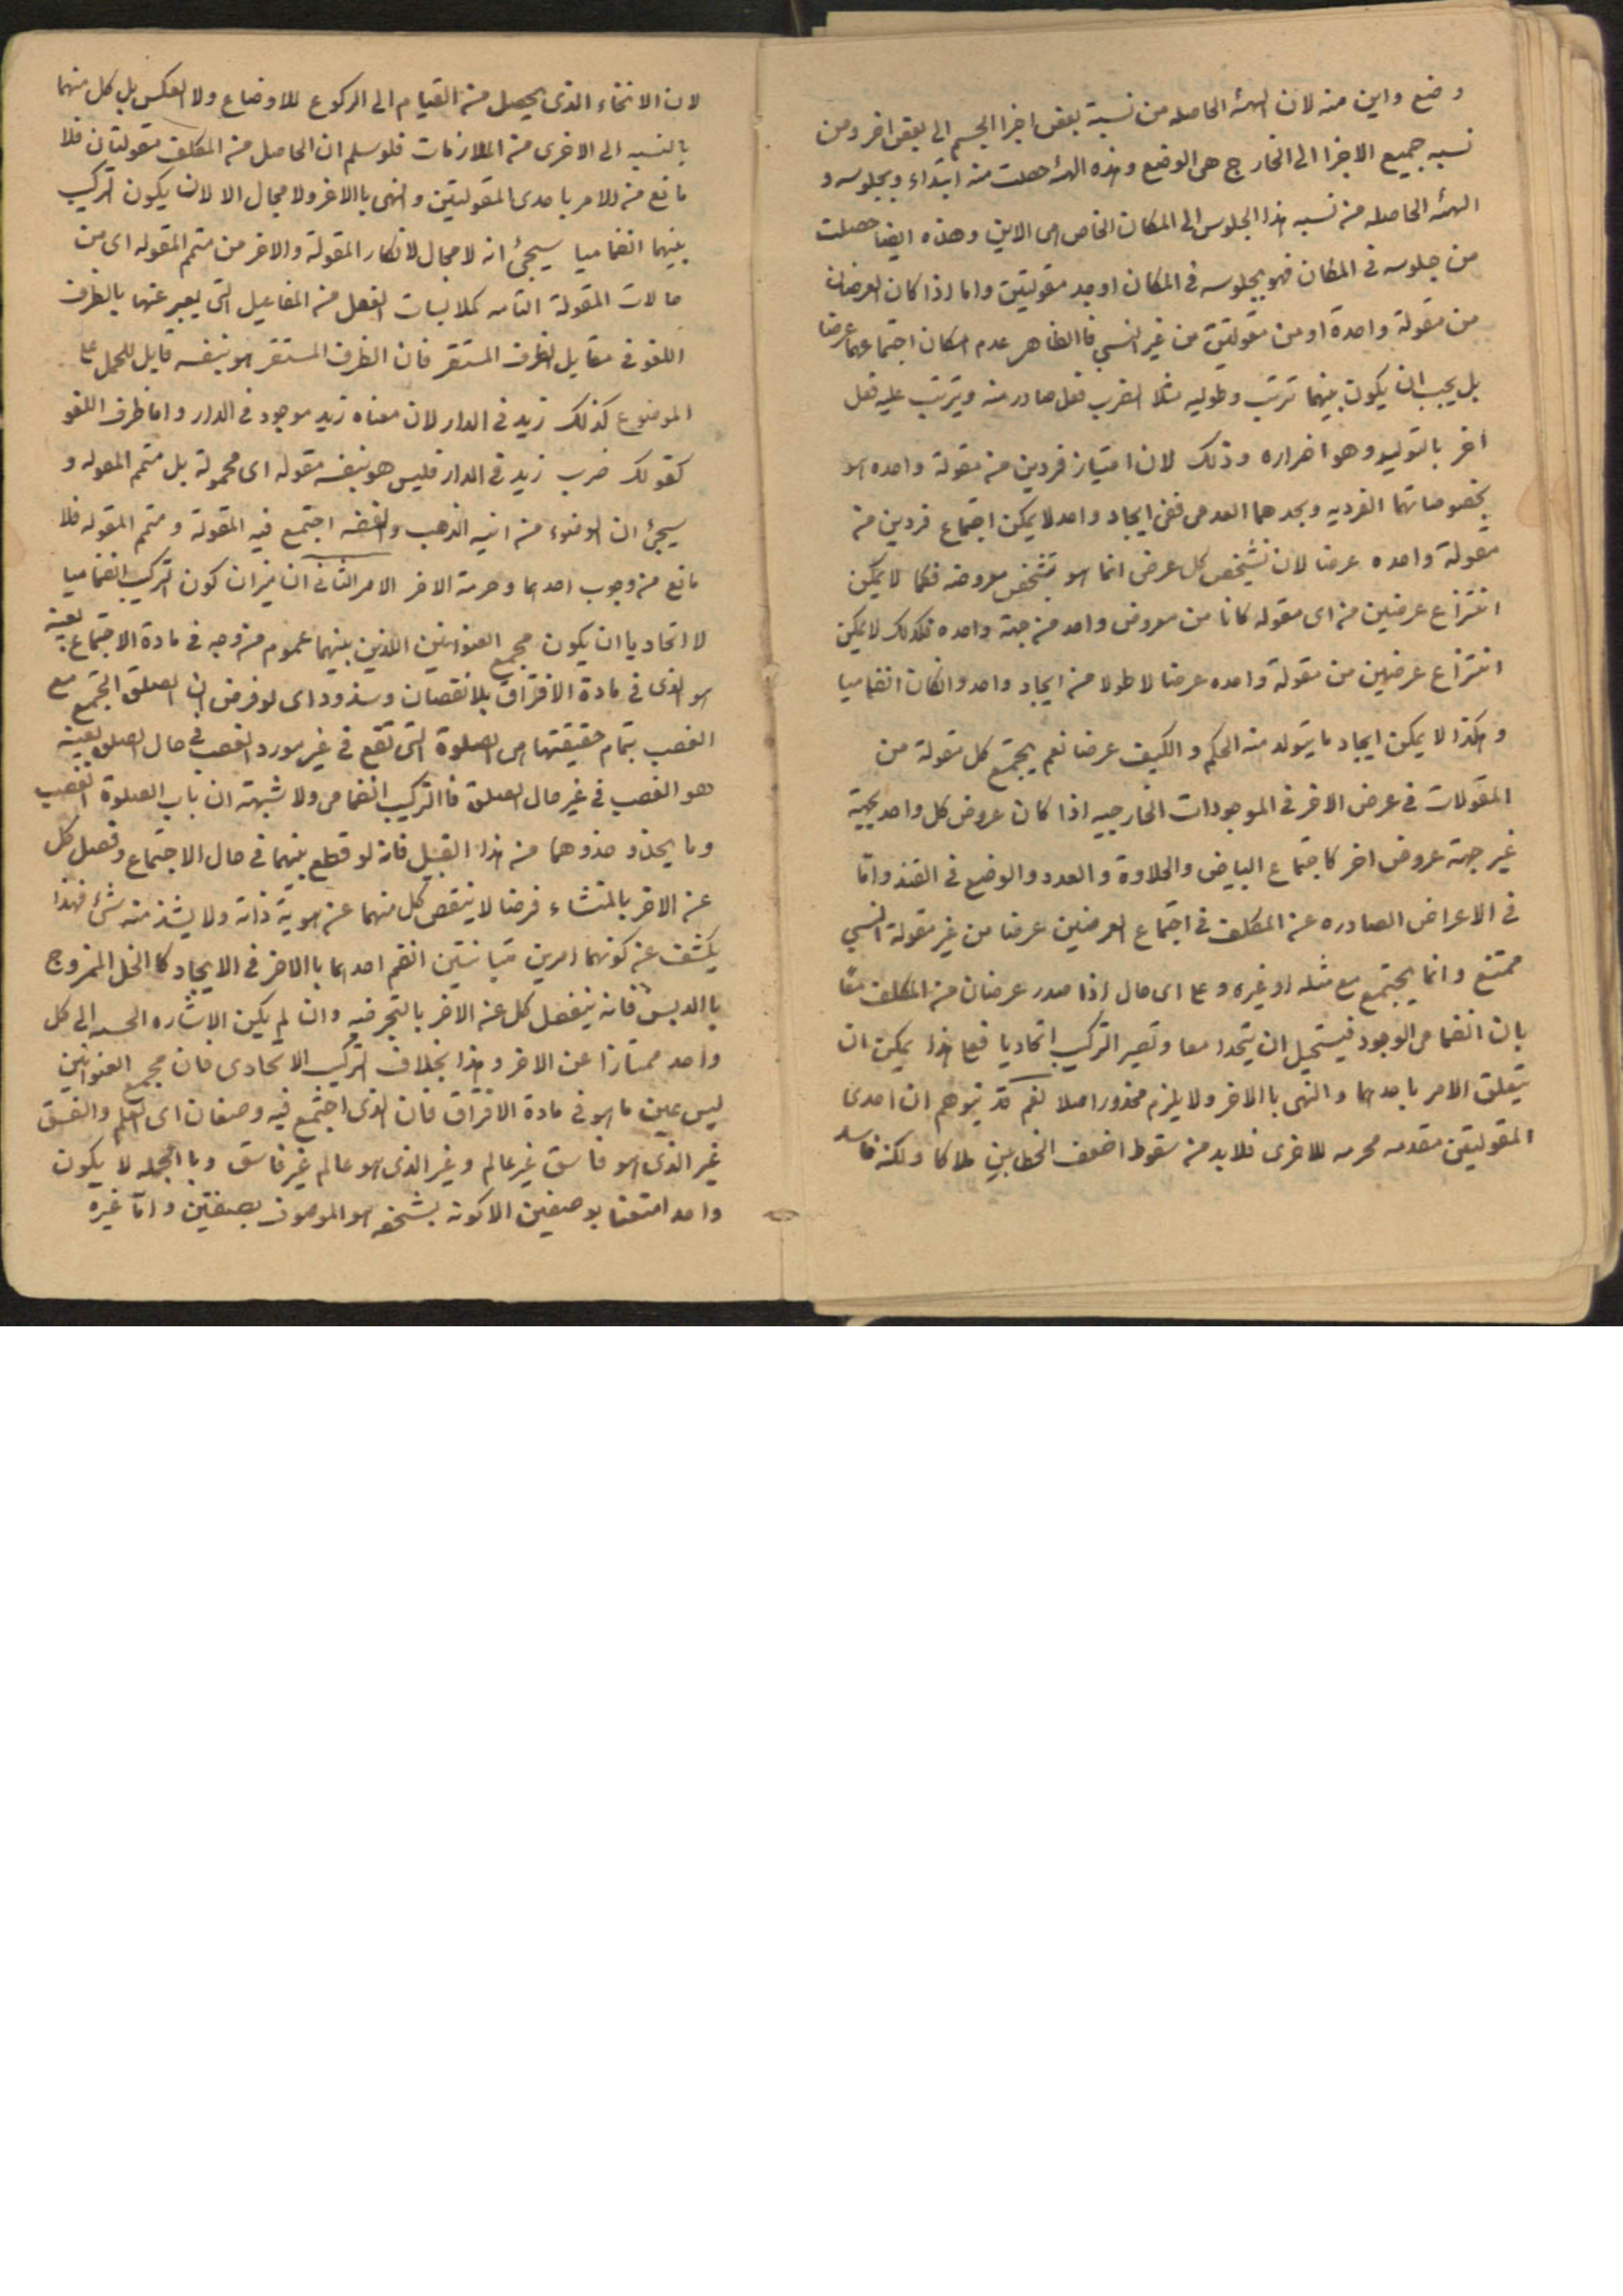 وضع واين منه لان الهئه الحاصله من نسبة بعض اجزا الجسم الى بعض اخر ومن
نسبه جميع الاجزا الى الخارج هى الوضع وهذه الهئه حصلت منه ابتداء وبجلوسه و
الهئه الحاصله من نسبه هذا الجلوس الى المكان الخاص هى الاين وهذه ايضا حصلت
من جلوسه فى المكان فهو بجلوسه فى المكان اوجد مقولتين واما اذا كان العرضان
من مقولة واحدة او من مقولتين من غير النسبي فاالظاهر عدم امكان اجتماعهما عرضا
بل يجب ان يكون بينهما ترتب وطوليه مثلا الضرب فعل صادر منه ويترتب عليه فعل
اخر بالتوليد وهو اضراره وذلك لان امتياز فردين من مقولة واحده هو
بخصوصاتهما الفرديه وبحدهما العدمى ففى ايجاد واحد لا يمكن اجتماع فردين من
مقولة واحده عرضا لان تشخص كل عرض انما هو بتشخص معروضه فكما لا يمكن
انتزاع عرضين من اى مقوله كانا من معروض واحد من جهة واحده فكذلك لا يمكن
انتزاع عرضين من مقولة واحده عرضا لا طولا من ايجاد واحد وانكان انضماميا
وهكذا لا يمكن ايجاد ما يتولد منه الحكم والكيف عرضا نعم يجتمع كل مقولة من
المقولات فى عرض الاخر فى الموجودات الخارجيه اذا كان عروض كل واحد بجهة
غير جهة عروض اخر كاجتماع البياض والحلاوة والعدد والوضع فى القند وامّا
فى الاعراض الصادره عن المكلف فى اجتماع العرضين عرضا من غير مقولة النسبي
ممتنع وانما يجتمع مع مثله او غيره وعلى اى حال اذا صدر عرضان من المكلف معًا
بان انضما فى الوجود فيستحيل ان يتحدا معا وتصير التركيب اتحاديا فعلى هذا يمكن ان
يتعلق الامر باحدهما والنهى باالاخر ولا يلزم محذور اصلا نعم قد يتوهم ان احدى
المقولتين مقدمه محرمه للاخرى فلابد من سقوط اضعف الخطابين ملاكا ولكنه فاسد
لان الانحناء الذى يحصل من القيام الى الركوع للاوضاع ولا العكس بل كل منهما
بالنسبه الى الاخرى من الملازمات فلو سلم ان الحاصل من المكلف مقولتان فلا
مانع من الامر باحدى المقولتين والنهى باالاخر ولا مجال الا لان يكون التركيب
بينهما انضماميا سيجئ انه لا مجال لانكار المقولة والاخر من متمم المقوله اى من
حالات المقولة التامه كملابسات الفعل من المفاعيل التى يعبر عنها بالظرف
اللغو فى مقابل الظرف المستقر فان الظرف المستقر هو بنفسه قابل للحمل على
الموضوع كذلك زيد فى الدار لان معناه زيد موجود فى الدار واما ظرف اللغو
كقولك ضرب زيد فى الدار فليس هو بنفسه مقوله اى محمولة بل متمم المعوله و
سيجئ ان الوضوء من انيه الذهب والفضه اجتمع فيه المقولة ومتمم المقوله فلا
مانع من وجوب احدهما وحرمة الاخر الامر الثانى ان ميزان كون التركيب انضماميا
لا اتحاديا ان يكون مجمع العنوانين اللذين بينهما عموم من وجه فى مادة الاجتماع بعينه
هو الذى فى مادة الافتراق بلا نقصان وشذوذ اى لو فرض ان الصلوة المجتمع مع
الغصب بتمام حقيقتها هى الصلوة التى تقع فى غير مورد الغصب فى حال الصلوة بعينه
هو الغصب فى غير حال الصلوة فاالتركيب انضمامى ولا شبهة ان باب الصلوة الغصب
وما يحذو حذوهما من هذا القبيل فانه لو قطع بينهما فى حال الاجتماع وفصل كل
عن الاخر بالمنشاء فرضا لا ينقص كل منهما عن هوية ذاته ولا يشذ منه شئ فهذا
يكشف عن كونهما امرين متباينين انضم احدهما باالاخر فى الايجاد كاالخل الممزوج
باالدبس فانه ينفصل كل عن الاخر بالتجرفيه وان لم يكن الاشاره الحسه الى كل
واحد ممتازا عن الاخر وهذا بخلاف التركيب الاتحادى فان مجمع العنوانين
ليس عين ما هو فى مادة الافتراق فان الذى اجتمع فيه وصفان اى العلم والفسق
غير الذى هو فاسق غير عالم وغير الذى هو عالم غير فاسق وباالجمله لا يكون
واحد امتصفا بوصفين الا كونه بشخصه هو الموصوف بصفتين وامّا غيره